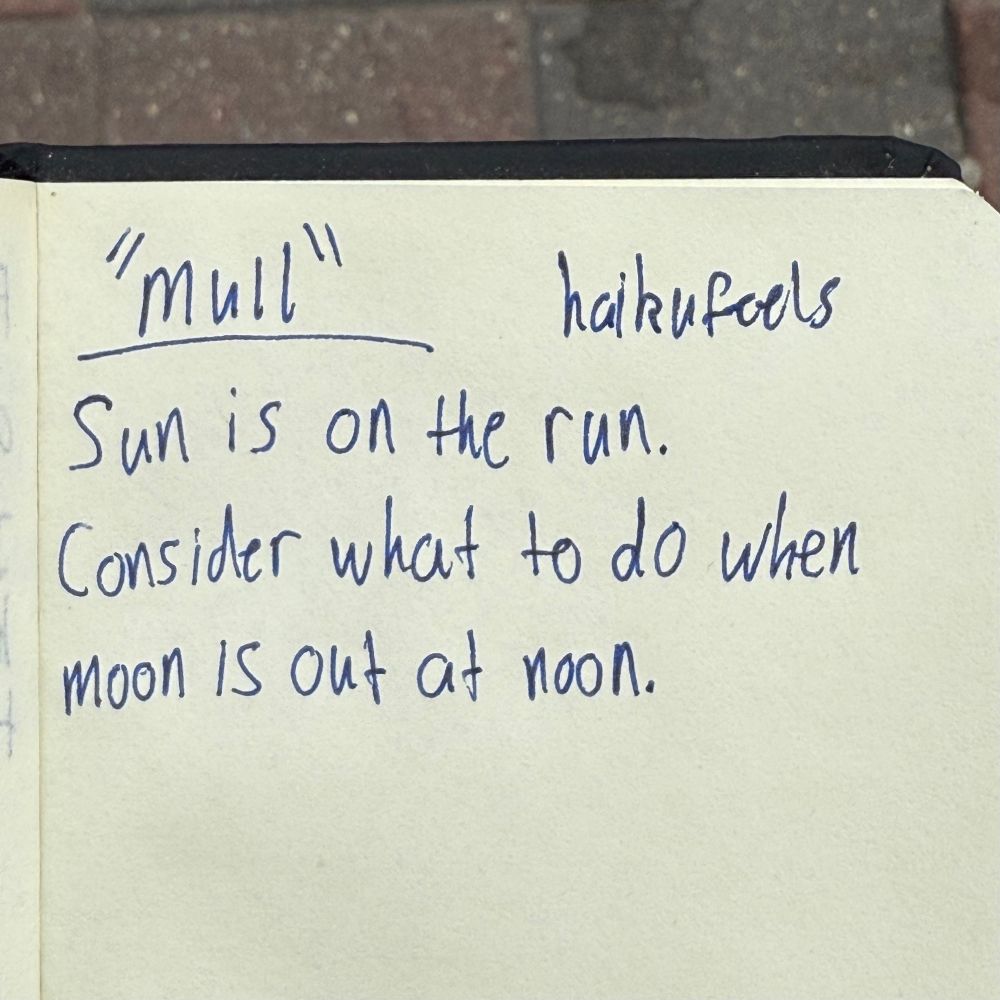 "mull" haikufeels
Sun is on the run.
Consider what to do when
moon is out at noon.